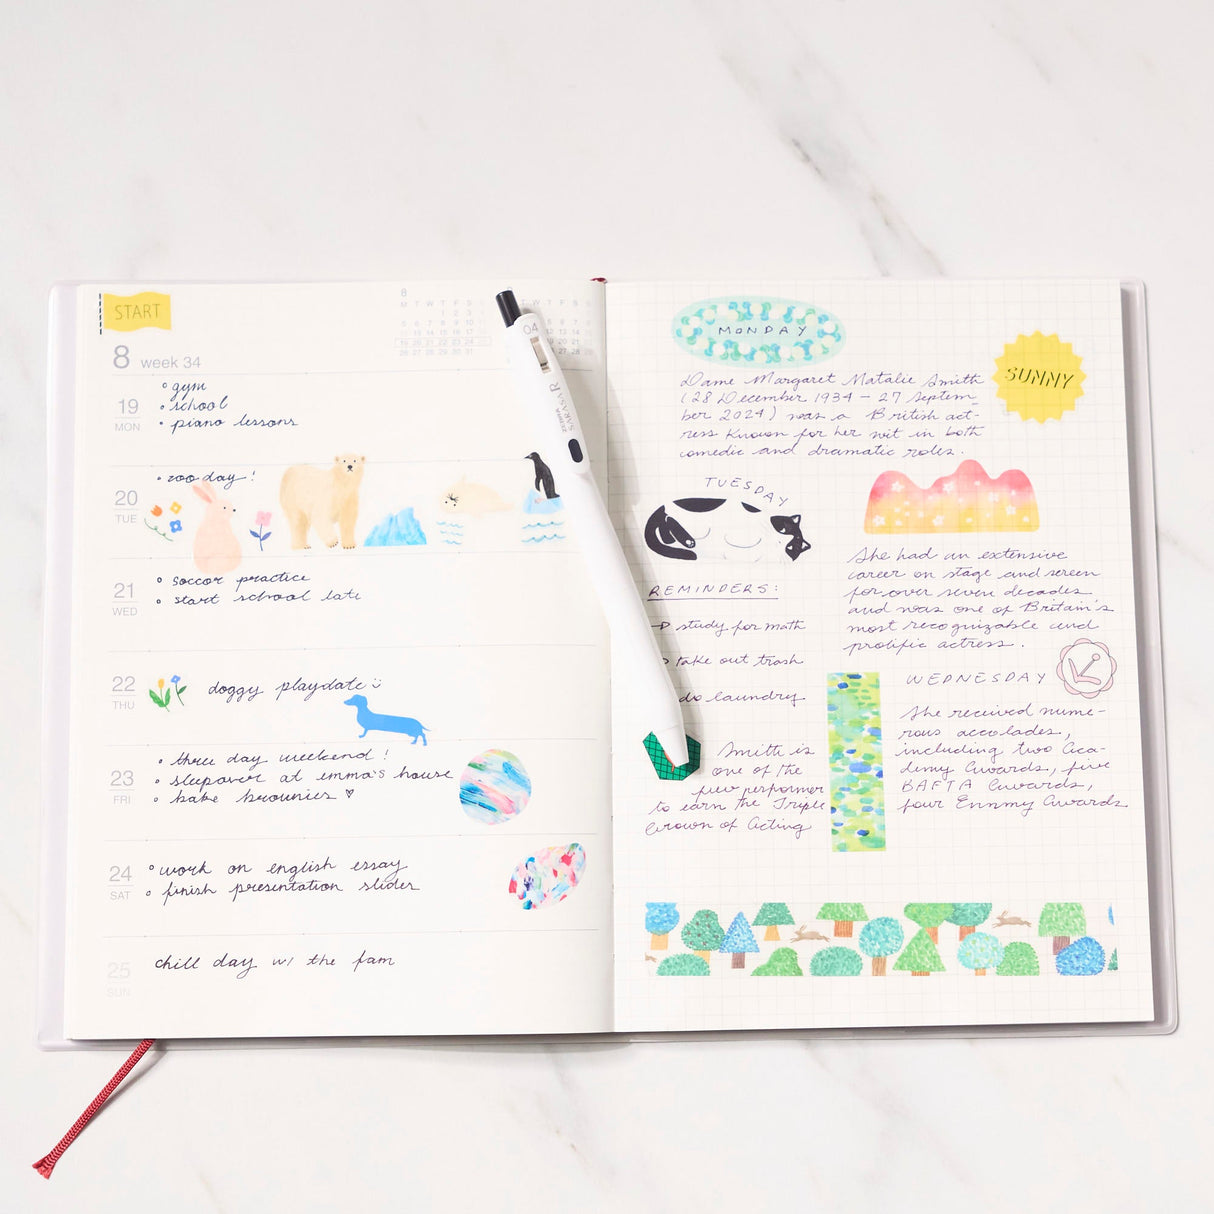 START
8 week 34
8
M T W T F S S
19
MON
gym
school
piano lessons
20
TUE
zoo day!
21
WED
soccor practice
start school late
22
THU
doggy playdate
23
FRI
three day weekend!
sleepover at emma's house
bake brownies ♡
24
SAT
work on english essay
finish presentation slides
25
SUN
chill day w/ the fam
04
ZEBRA
SARASA R
MONDAY
SUNNY
Dame Margaret Natalie Smith
(28 December 1934 - 27 Septem-
ber 2024) was a British act-
ress known for her wit in both
comedic and dramatic roles.
TUESDAY
REMINDERS:
study for math
take out trash
do laundry
She had an extensive
career on stage and screen
for over seven decades
and was one of Britain's
most recognizable and
prolific actress.
WEDNESDAY
She received nume-
rous accolades,
including two Aca-
demy Awards, five
BAFTA Awards,
four Emmmy Awards
Smith is
one of the
few performer
to earn the Triple
Crown of Acting